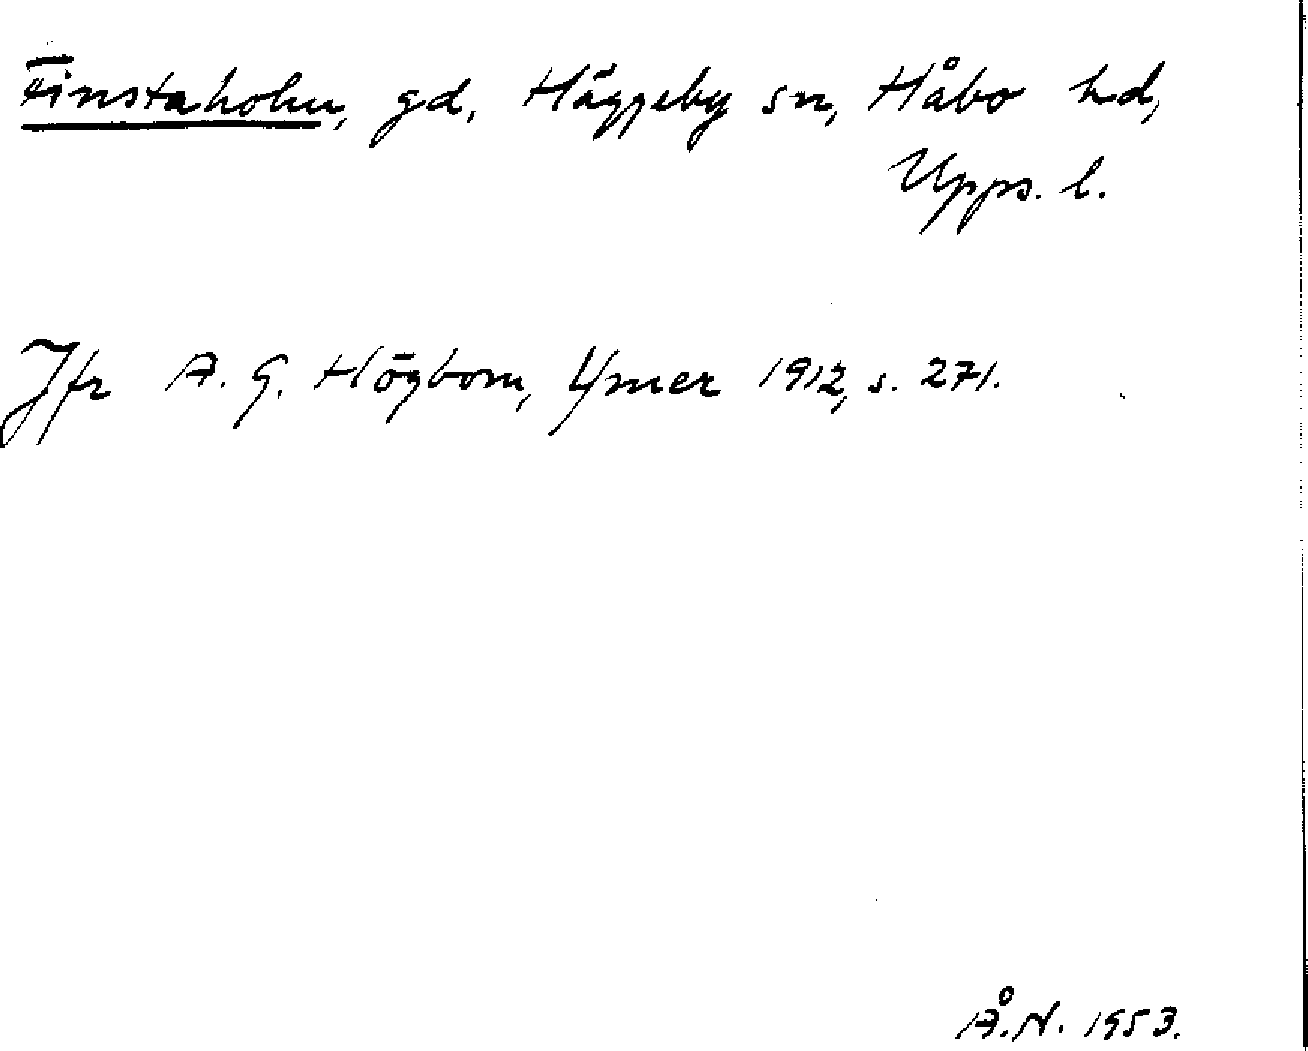 Finstaholm, gd, Häggeby sn, Håbo hd,
Upps. l.
Jfr A. G. Högbom, Ymer 1912, s. 271.
Å.N. 1953.